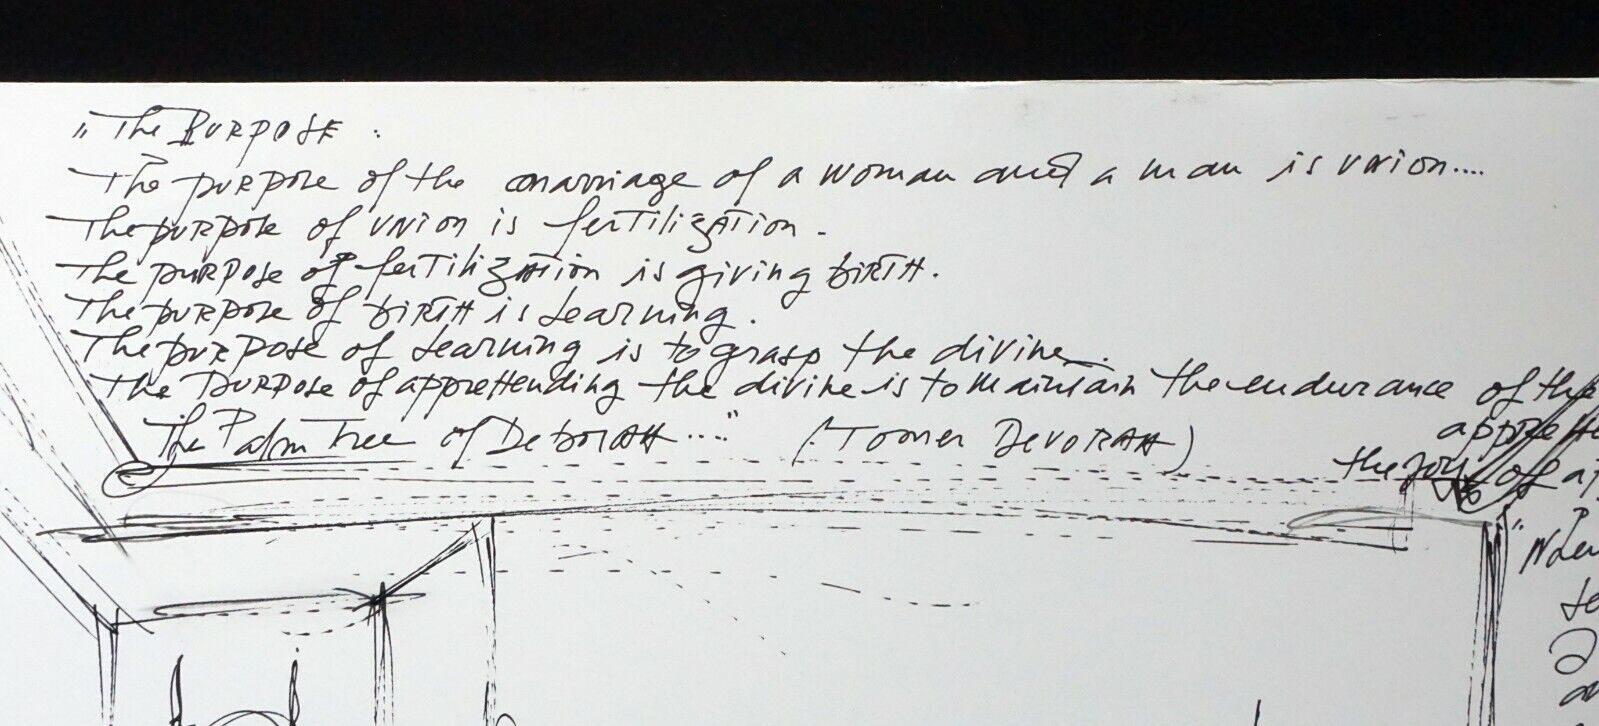 "The PURPOSE :
The purpose of the marriage of a woman and a man is union....
The purpose of union is fertilization.
The purpose of fertilization is giving birth.
The purpose of birth is learning.
The purpose of learning is to grasp the divine.
The purpose of apprehending the divine is to maintain the endurance of the
apprehe
the joy of ap
The Palm Tree of Deborah...." (Tomer Devorah)
"